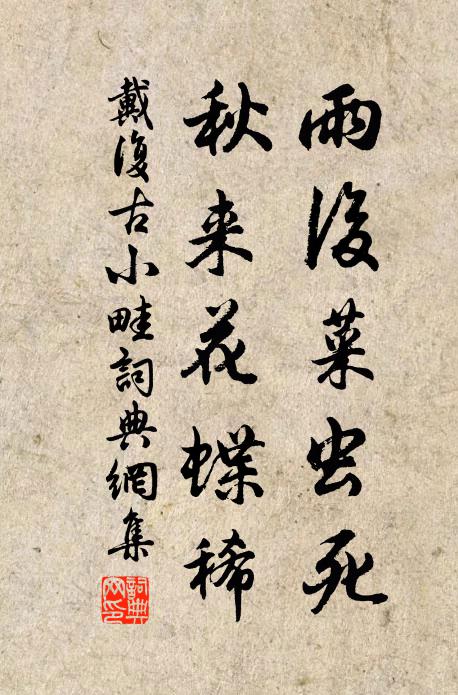 雨後菜虫死
秋来花蝶稀
戴復古小畦詞典網集
詞典网印